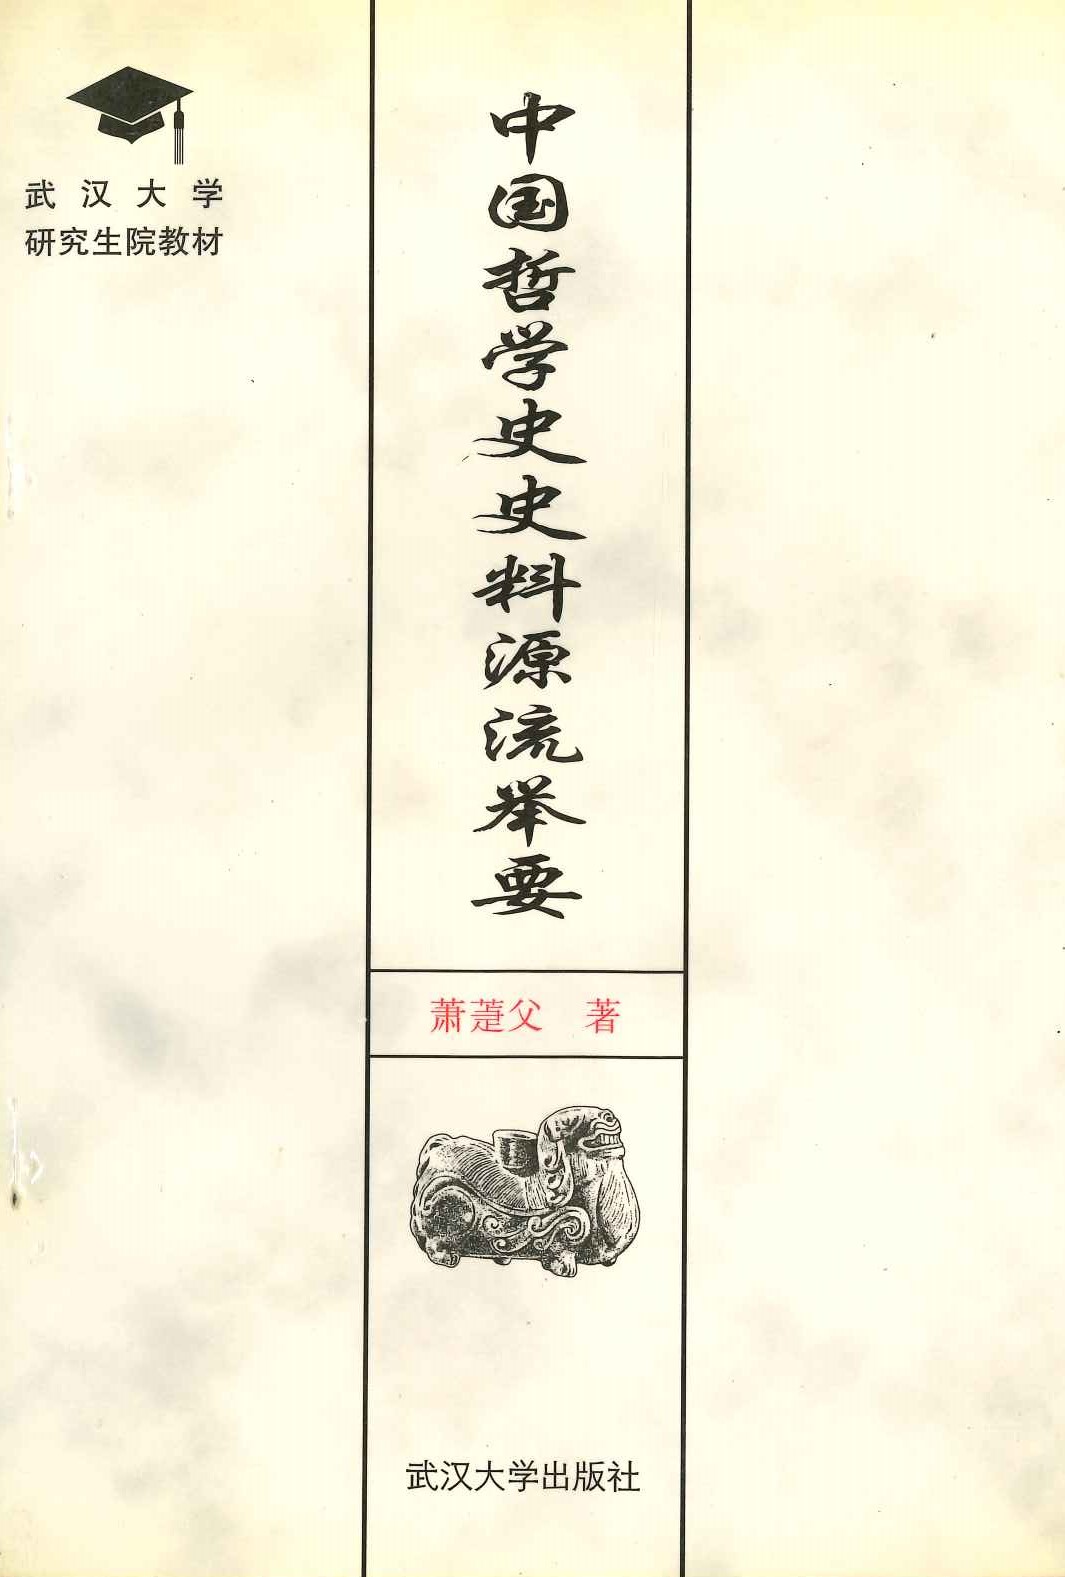 武汉大学
研究生院教材
中国哲学史史料源流举要
萧萐父 著
武汉大学出版社